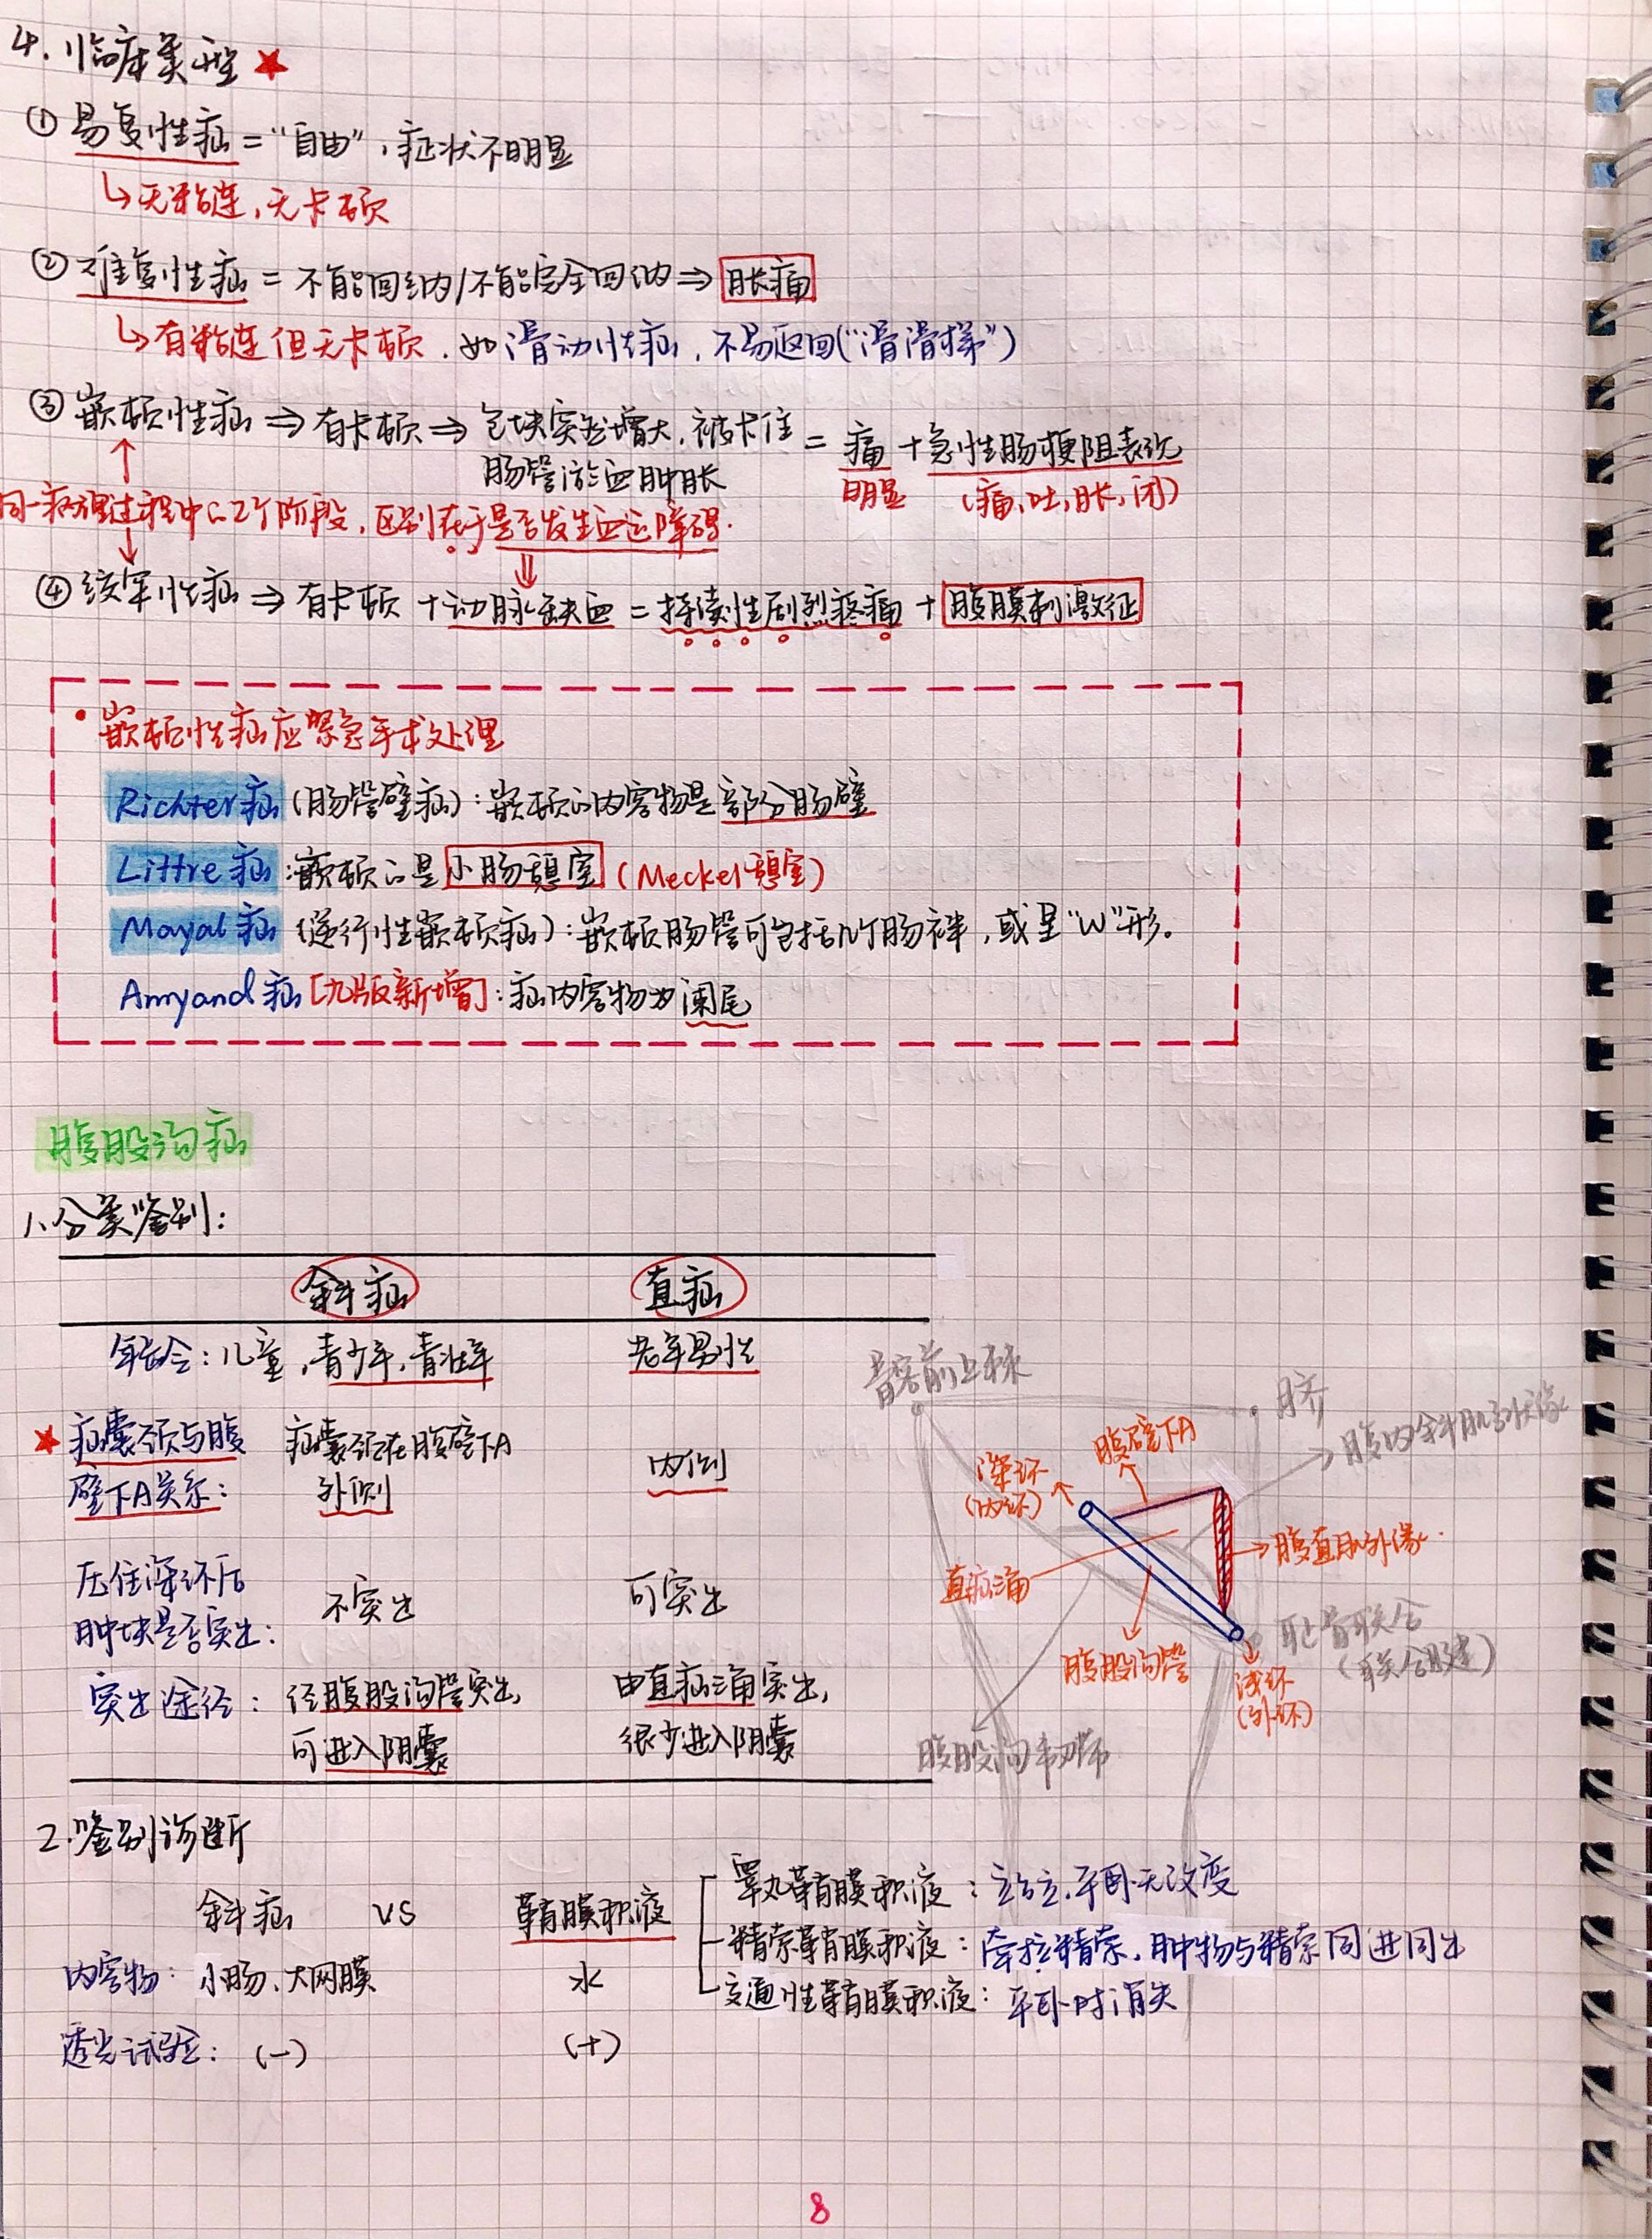 4. 临床类型 ★
① 易复性疝 = “自由”, 症状不明显
↳ 无粘连, 无卡顿
② 难复性疝 = 不能回纳/不能完全回纳 ⇒ 胀痛
↳ 有粘连但无卡顿. 如滑动性疝, 不易返回(“滑滑梯”)
③ 嵌顿性疝 ⇒ 有卡顿 ⇒ 包块突然增大, 被卡住 = 痛 + 急性肠梗阻表现
肠管淤血肿胀 明显 (痛, 吐, 胀, 闭)
同一病理过程中的2个阶段, 区别在于是否发生血运障碍.
④ 绞窄性疝 ⇒ 有卡顿 + 动脉缺血 = 持续性剧烈疼痛 + 腹膜刺激征
• 嵌顿性疝应紧急手术处理
Richter疝 (肠管壁疝): 嵌顿的内容物是部分肠壁
Littre 疝: 嵌顿的是小肠憩室 (Meckel憩室)
Mayal 疝 (逆行性嵌顿疝): 嵌顿肠管可包括几个肠袢, 或呈“W”形.
Amyand 疝 [九版新增]: 疝内容物为阑尾
腹股沟疝
1. 分类鉴别:
斜疝 直疝
年龄: 儿童, 青少年, 青壮年 老年男性
★ 疝囊颈与腹 疝囊颈在腹壁下A 内侧
壁下A关系: 外侧
压住深环后 不突出 可突出
肿块是否突出:
突出途径: 经腹股沟管突出, 由直疝三角突出,
可进入阴囊 很少进入阴囊
髂前上棘
脐
腹内斜肌弓状缘
腹壁下A
深环
(内环)
腹直肌外缘.
直疝三角
耻骨联合
(联合腱)
腹股沟管
浅环
(外环)
腹股沟韧带
2. 鉴别诊断
斜疝 VS 鞘膜积液
睾丸鞘膜积液: 站立. 平卧无改变
精索鞘膜积液: 牵拉精索, 肿物与精索同进同出
交通性鞘膜积液: 平卧时消失
内容物: 小肠、大网膜 水
透光试验: (-) (+)
8